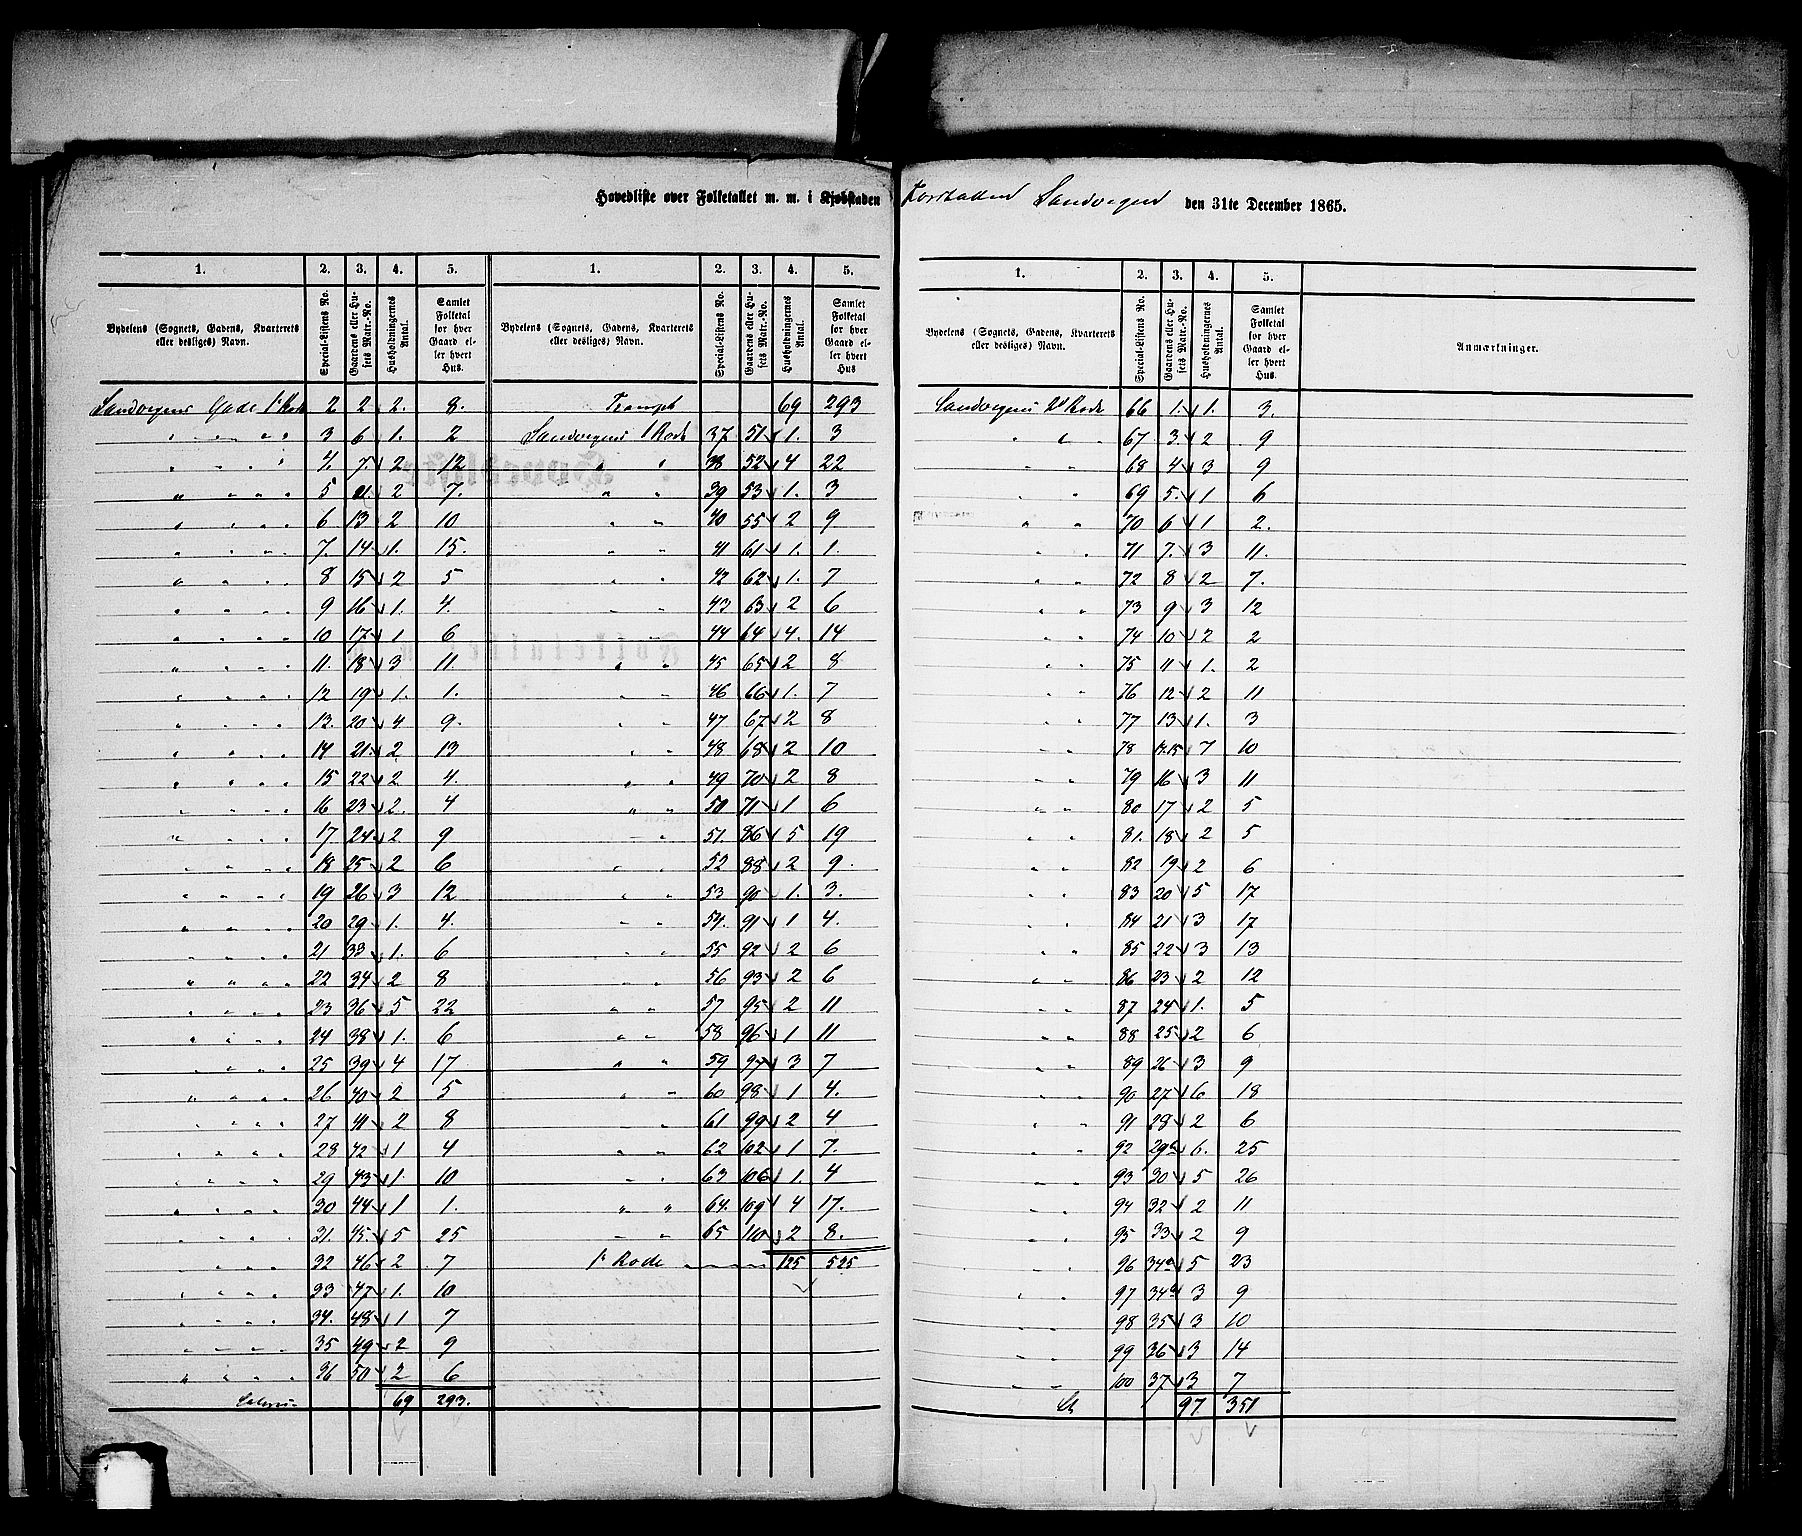 Hovedliste over Folketallet m. m. i Kjøbstaden Forstaden Sandvigen den 31te December 1865.
1. 2. 3. 4. 5. 1. 2. 3. 4. 5.
Bydelens (Sognets, Gadens, Kvarterets eller desliges) Navn. Special-Listens No. Gaardens eller Husets Matr.-No. Husholdningernes Antal. Samlet Folketal for hver Gaard eller hvert Hus. Bydelens (Sognets, Gadens, Kvarterets eller desliges) Navn. Special-Listens No. Gaardens eller Husets Matr.-No. Husholdningernes Antal. Samlet Folketal for hver Gaard eller hvert Hus
Sandvigens Gade 1ste Rode 2 2 2. 8. Transpt 69 293
" " " " 3 6 1. 2 Sandvigens 1 Rode 37 51 1. 3
" " " " 4. 7. 2 12 " " 38 52 4 22
" " " " 5 2 7. " " 39 53 1. 3
" " " " 6 13 2 10 " " 40 55 2 9
" " " " 7. 14 1. 15. " " 41 61 1. 1.
" " " " 8 15 2 5 " " 42 62 1. 7
" " " " 9 16 1. 4. " " 43 63 2 6
" " " " 10 17 1 6 " " 44 64 4. 14
" " " " 11. 18 3 11. " " 45 65 2 8
" " " " 12 19 1. 1. " " 46 66 1. 7
" " " " 13. 20 4 9. " " 47 67 2 8
" " " " 14 21. 2 13 " " 48 68 2 10
" " " " 15 22 2 4. " " 49 70 2 8
" " " " 16 23 2. 4 " " 50 71 1 6
" " " " 17 24 2 9 " " 51. 86 5 19
" " " " 18 25 2 6 " " 52 88 2 9.
" " " " 19 26 3 12 " " 53 90 1. 3.
" " " " 20 29 1. 4. " " 54. 91 1 4.
" " " " 21 33 1. 6 " " 55 92 2 6
" " " " 22 34 2 8 " " 56 93 2 6
" " " " 23 36 5 22 " " 57 95 2 11
" " " " 24 38 1. 6 " " 58 96 1 11
" " " " 25 39 4 17 " " 59 97 3 7
" " " " 26 40 2 5 " " 60 98 1 4.
" " " " 27 41 2 8 " " 61 99 2 4
" " " " 28 42 1 4 " " 62 102 1 7.
" " " " 29 43 1. 10 " " 63 106 1. 4
" " " " 30 44 1 1. " " 64. 109 4 17.
" " " " 31. 45. 5 25 " " 65 110 2 8.
" " " " 32 46 2 7 1ste Rode 125 525
" " " " 33 47 1. 10
" " " " 34. 48 1 7
" " " " 35 49 2 9
" " " " 36 50 2 6
69 293.
1. 2. 3. 4. 5.
Bydelens (Sognets, Gadens, Kvarterets eller desliges) Navn. Special-Listens No. Gaardens eller Husets Matr.-No. Husholdningernes Antal. Samlet Folketal for hver Gaard eller hvert Hus. Anmærkninger.
Sandvigens 2d Rode 66 1. 1. 3.
" " 67 3. 2 9
" " 68 4 3 9
" " 69 5. 1 6
" " 70 6 1 2.
" " 71 7. 3 11.
" " 72 8 2 7.
" " 73 9 3 12
" " 74 10 2 2
" " 75 11 1. 2
" " 76 12 2 11
" " 77 13 1. 3
" " 78 14.15 7 10
" " 79 16 3 11
" " 80 17 2 5
" " 81. 18 2 5
" " 82 19 2 6
" " 83 20 5 17
" " 84 21 3 17
" " 85 22 3 13
" " 86 23 2 12
" " 87 24 1. 5
" " 88 25 2 6
" " 89 26 3 9
" " 90 27 6 18
" " 91 28 2 6
" " 92 29a 6. 25
" " 93 30 5 26
" " 94 32 2 11
" " 95 33 2 9
" " 96 34a 5 23
" " 97 34 3 9
" " 98 35 3 10
" " 99 36 3 14
" " 100 37 3 7
97 351